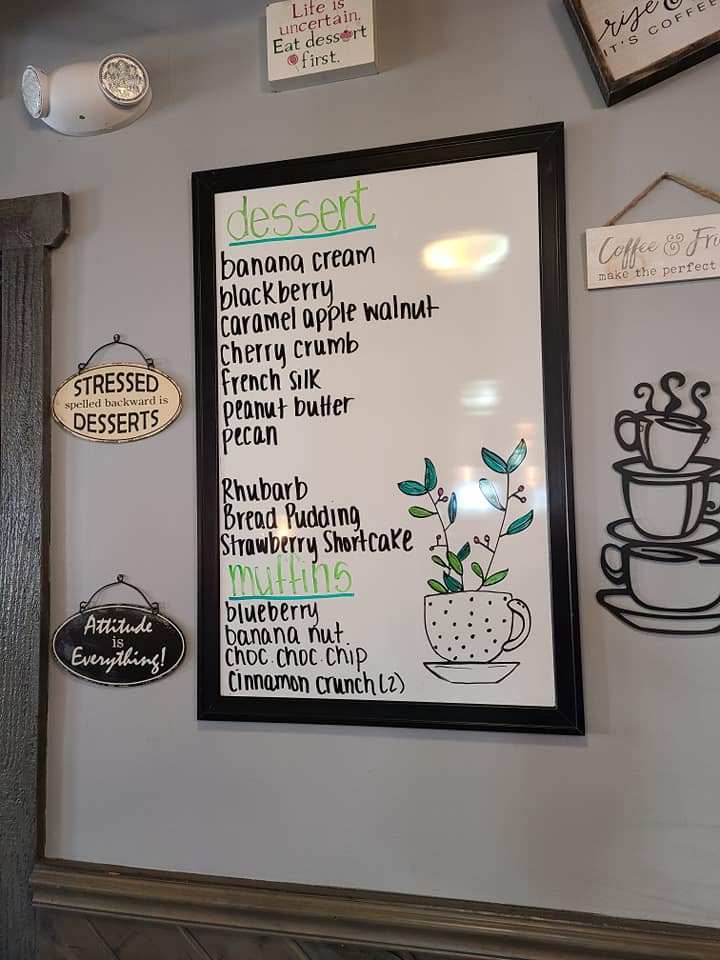 Life is
uncertain.
Eat dessert
first.
rise &
IT'S COFFEE
dessert
banana cream
blackberry
caramel apple walnut
cherry crumb
french silk
peanut butter
pecan
Rhubarb
Bread Pudding
Strawberry Shortcake
muffins
blueberry
banana nut.
choc. choc. chip
cinnamon crunch (2)
STRESSED
spelled backward is
DESSERTS
Attitude
is
Everything!
Coffee &
make the perfect